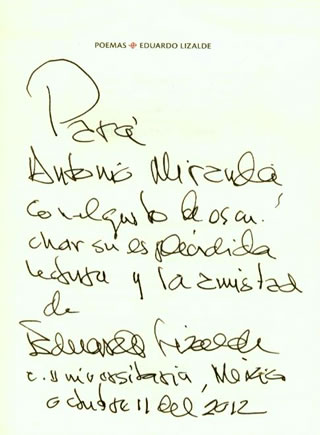 POEMAS ✻ EDUARDO LIZALDE
Para
Antonio Miranda
con el gusto de escu
char su espléndida
lectura y la amistad
de
Eduardo Lizalde
C. Universitaria, México
octubre 11 del 2012